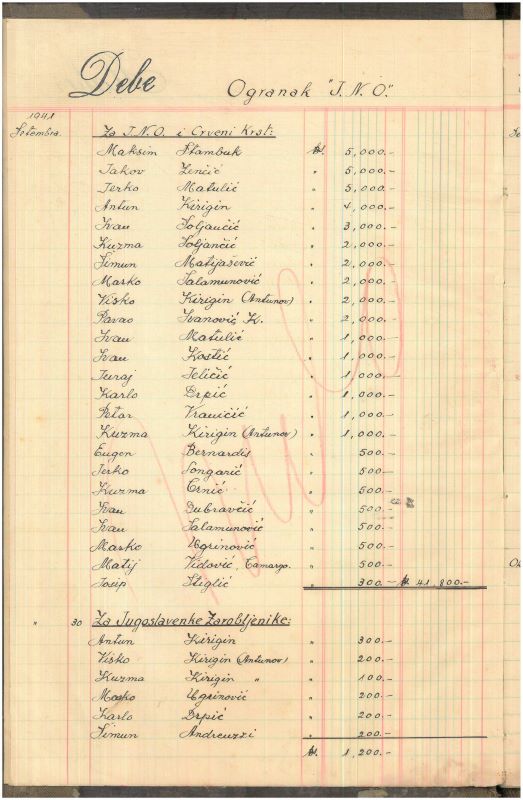 Debe Ogranak "J.N.O."
1941
Setembra. Za J.N.O. i Crveni Krst:
Maksim Stambuk $. 5,000.-
Jakov Zencić " 5,000.-
Jerko Matulić " 5,000.-
Antun Kirigin " 4,000.-
Ivan Soljančić " 3,000.-
Kuzma Soljančić " 2,000.-
Šimun Matijašević " 2,000.-
Marko Salamunović " 2,000.-
Visko Kirigin (Antunov) " 2,000.-
Pavao Ivanović K. " 2,000.-
Ivan Matulić " 1,000.-
Ivan Kostić " 1,000.-
Juraj Jeličić " 1,000.-
Karlo Drpić " 1,000.-
Petar Vraničić " 1,000.-
Kuzma Kirigin (Antunov) " 1,000.-
Eugen Bernardis " 500.-
Jerko Gongarić " 500.-
Kuzma Crnić " 500.-
Ivan Dubravčić " 500.-
Ivan Salamunović " 500.-
Marko Ugrinović " 500.-
Matij Vidović, Camargo. " 500.-
Josip Stiglić " 300.- $. 41,800.-
" 30 Za Jugoslavenke Zarobljenike:
Antun Kirigin " 300.-
Visko Kirigin (Antunov) " 200.-
Kuzma Kirigin " " 100.-
Marko Ugrinović " 200.-
Karlo Drpić " 200.-
Šimun Andreuzzi " 200.-
$. 1,200.-